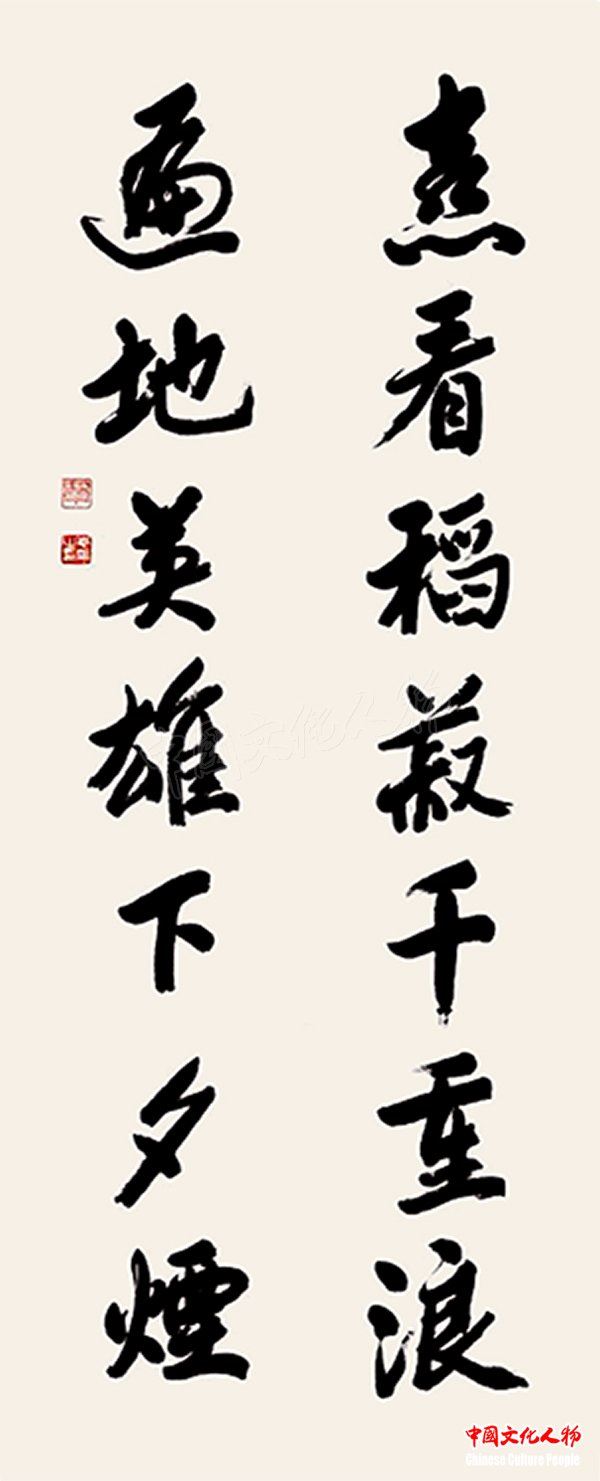 喜看稻菽千重浪
遍地英雄下夕煙
中國文化人物
中國文化人物
Chinese Culture People